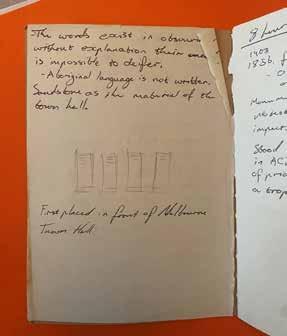 The words exist in obscuri
without explanation their
is impossible to defer.
- Aboriginal language is not written.
Sandstone as the material of the
town hall.
First placed in front of Melbourne
Town Hall.
8 hour
1903
1856.
- O
in AC
of
a trop